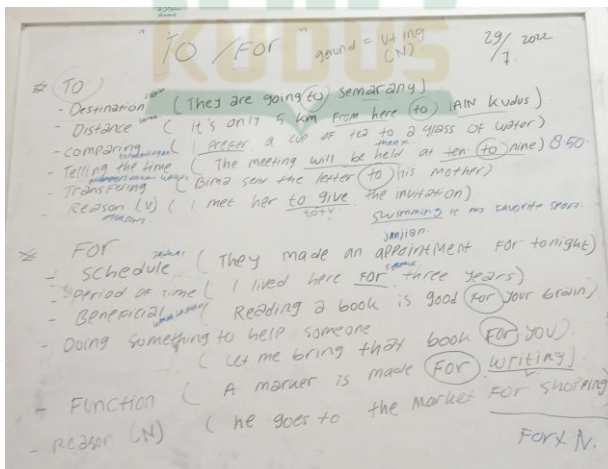 KUDUS
"TO / FOR" gerund = V+ing (N)
29/7 2022
TO
- Destination (They are going to semarang)
- Distance ( It's only 5 km from here to IAIN Kudus )
- comparing ( I prefer a cup of tea to a glass of water)
- Telling the time ( The meeting will be held at ten to nine) 8.50
- Transfering ( Bima sent the letter to his mother)
- Reason (V) ( I met her to give the invitation)
to+V
swimming is my favorite sport
janjian
FOR
- schedule ( They made an appointment for tonight)
- period of Time ( I lived here for three years)
- Beneficial ( Reading a book is good for your brain)
- Doing something to help someone
( Let me bring that book for you)
- Function ( A marker is made for writing)
- Reason (N) ( he goes to the market for shopping
For+N.